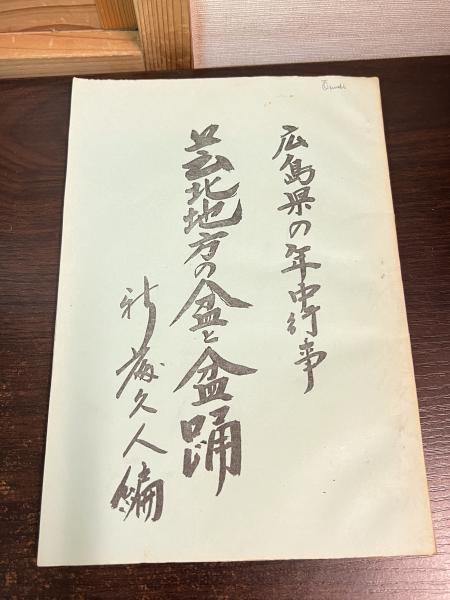 広島県の年中行事
芸北地方の盆と盆踊
新藤久人編